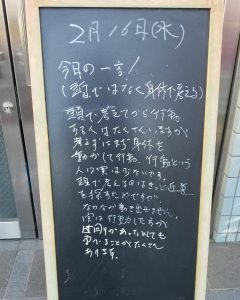 2月16日(水)
今日の一言!
(頭ではなく身体で考える)
頭で考えてから行動
する人はたくさんいますが
考えずにまず身体を
動かして行動、行動という
人は実は少ないです。
頭で考えるのはきっと近道
を探すためですが
なかなか動き出せません。
実は行動した方が
遠回りがあったとしても
学べることがたくさん
あります。